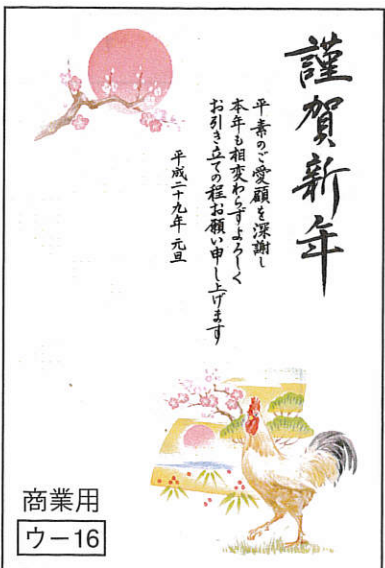 謹賀新年
平素のご愛顧を深謝し
本年も相変わらずよろしく
お引き立ての程お願い申し上げます
平成二十九年 元旦
商業用
ウー16